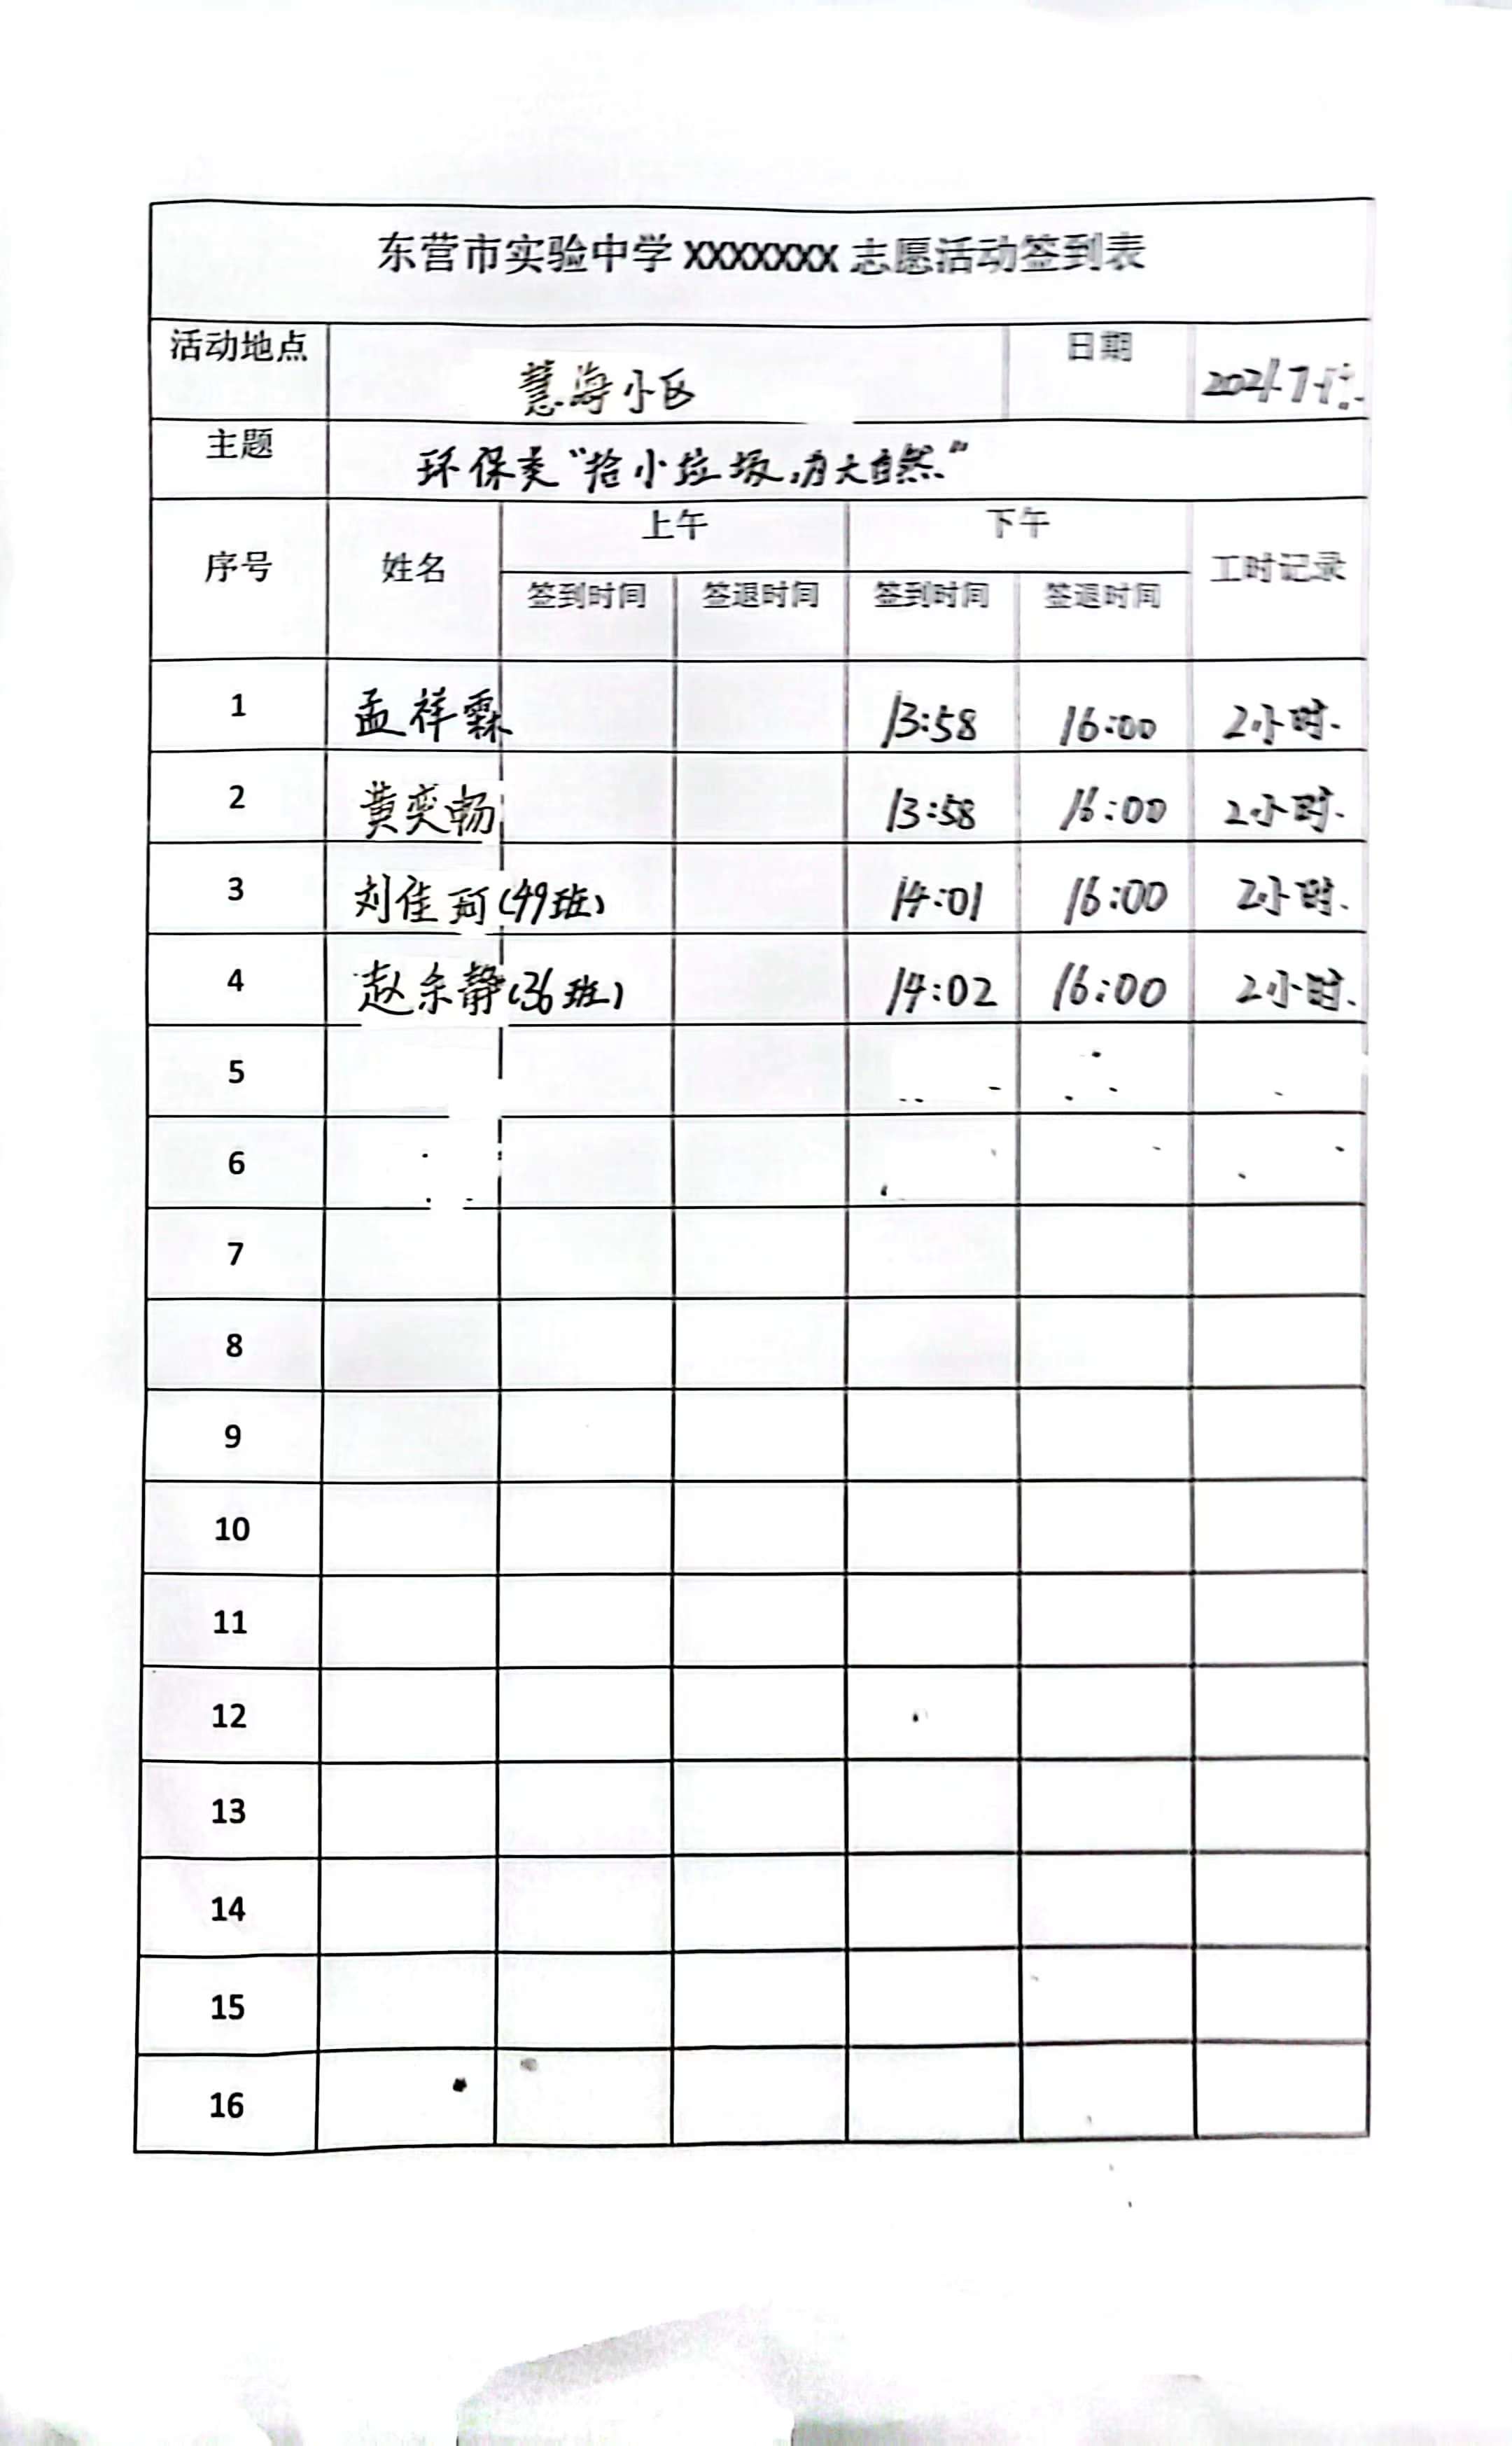 东营市实验中学 XXXXXXX 志愿活动签到表
活动地点 慧海小区 日期
主题 环保类“拾小垃圾,为大自然.”
序号 姓名 上午 下午 工时记录
签到时间 签退时间 签到时间 签退时间
1 孟祥霖 13:58 16:00 2小时.
2 黄奕畅 13:58 16:00 2小时.
3 刘佳珂(49班) 14:01 16:00 2小时.
4 赵 静(36班) 14:02 16:00 2小时.
5
6
7
8
9
10
11
12
13
14
15
16